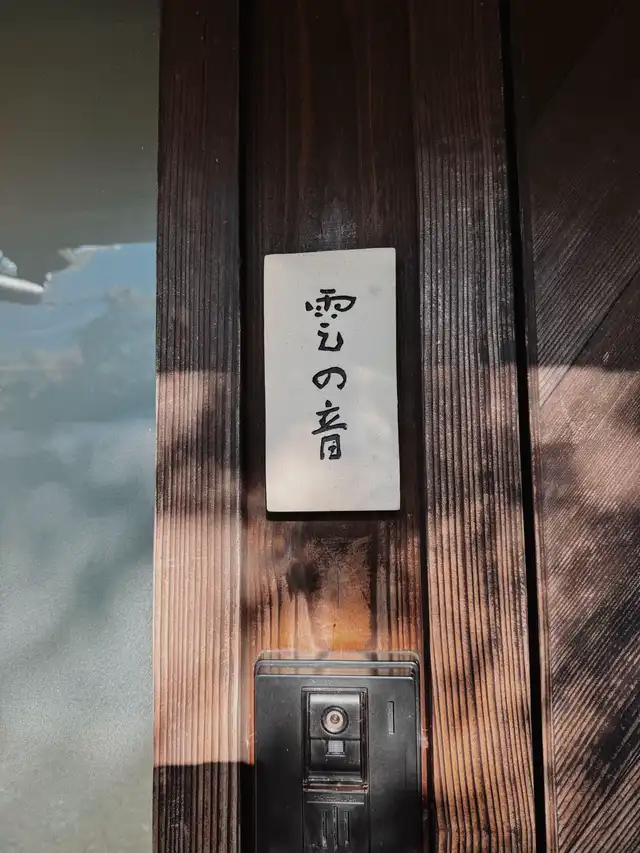 雲の音